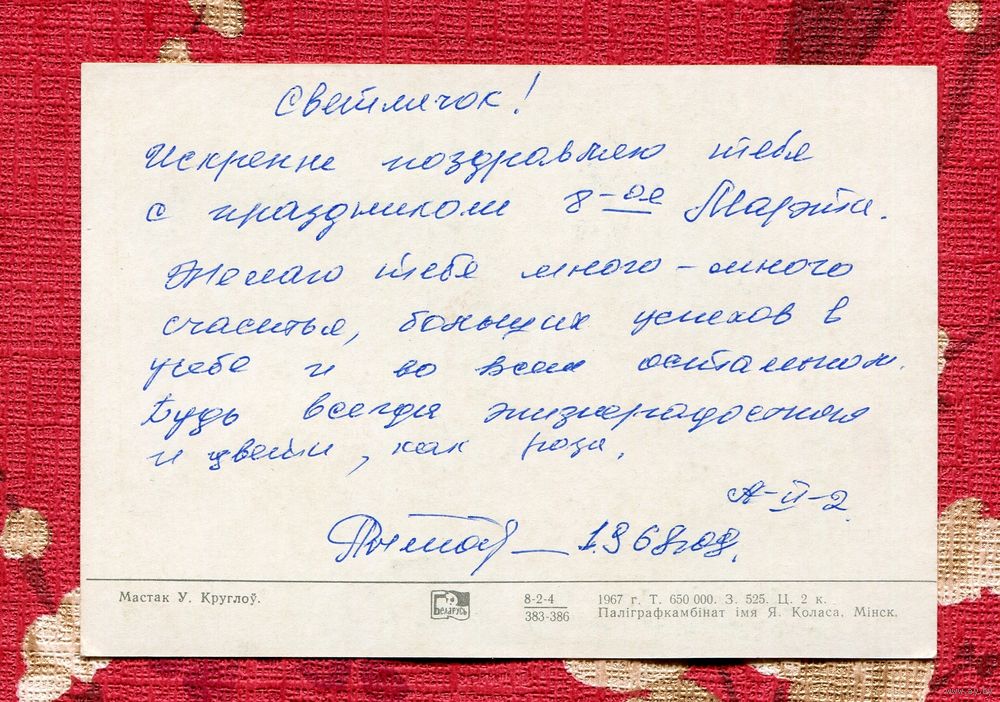 Светлячок!
Искренне поздравляю тебя
с праздником 8-ое Марта.
Желаю тебе много-много
счастья, больших успехов в
учебе и во всем остальном.
Будь всегда жизнерадостной
и цвети, как роза.
А-II-2
1968 год.
Мастак У. Круглоў.
Беларусь
8-2-4
383-386
1967 г. Т. 650 000. З. 525. Ц. 2 к.
Паліграфкамбінат імя Я. Коласа, Мінск.